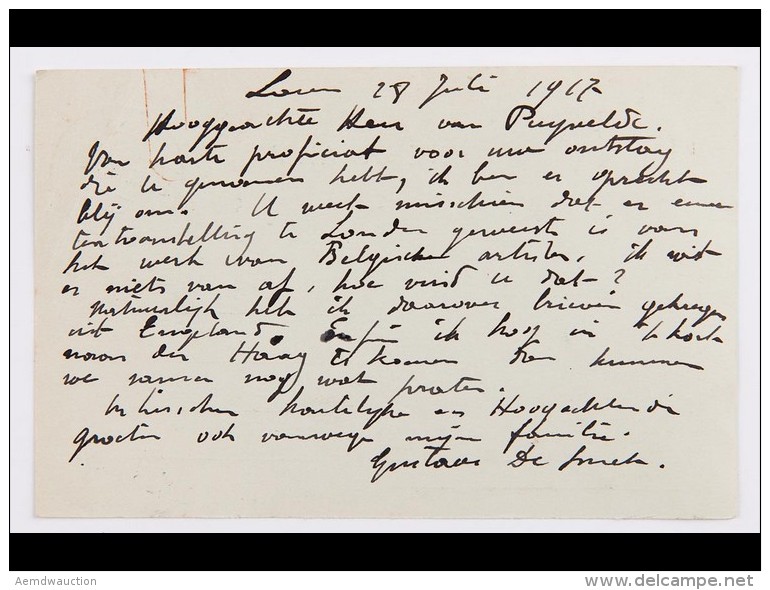 Laren 28 Juli 1917
Hooggeachte Heer van Puyvelde.
Van harte proficiat voor uw ontslag
die U genomen hebt, ik ben er oprecht
blij om. U weet misschien dat er eene
tentoonstelling te Londen geweest is van
het werk van Belgische artisten, ik wist
er niets van af, hoe vind U dat?
Natuurlijk heb ik daarover brieven gekregen
uit Engeland. Enfin ik hoop in 't kort
naar den Haag te komen dan kunnen
we samen nog wat praten.
Intusschen hartelijke en Hoogachtende
groeten ook vanwege mijn familie.
Gustave De Smet.
Aemdwauction
www.delcampe.net